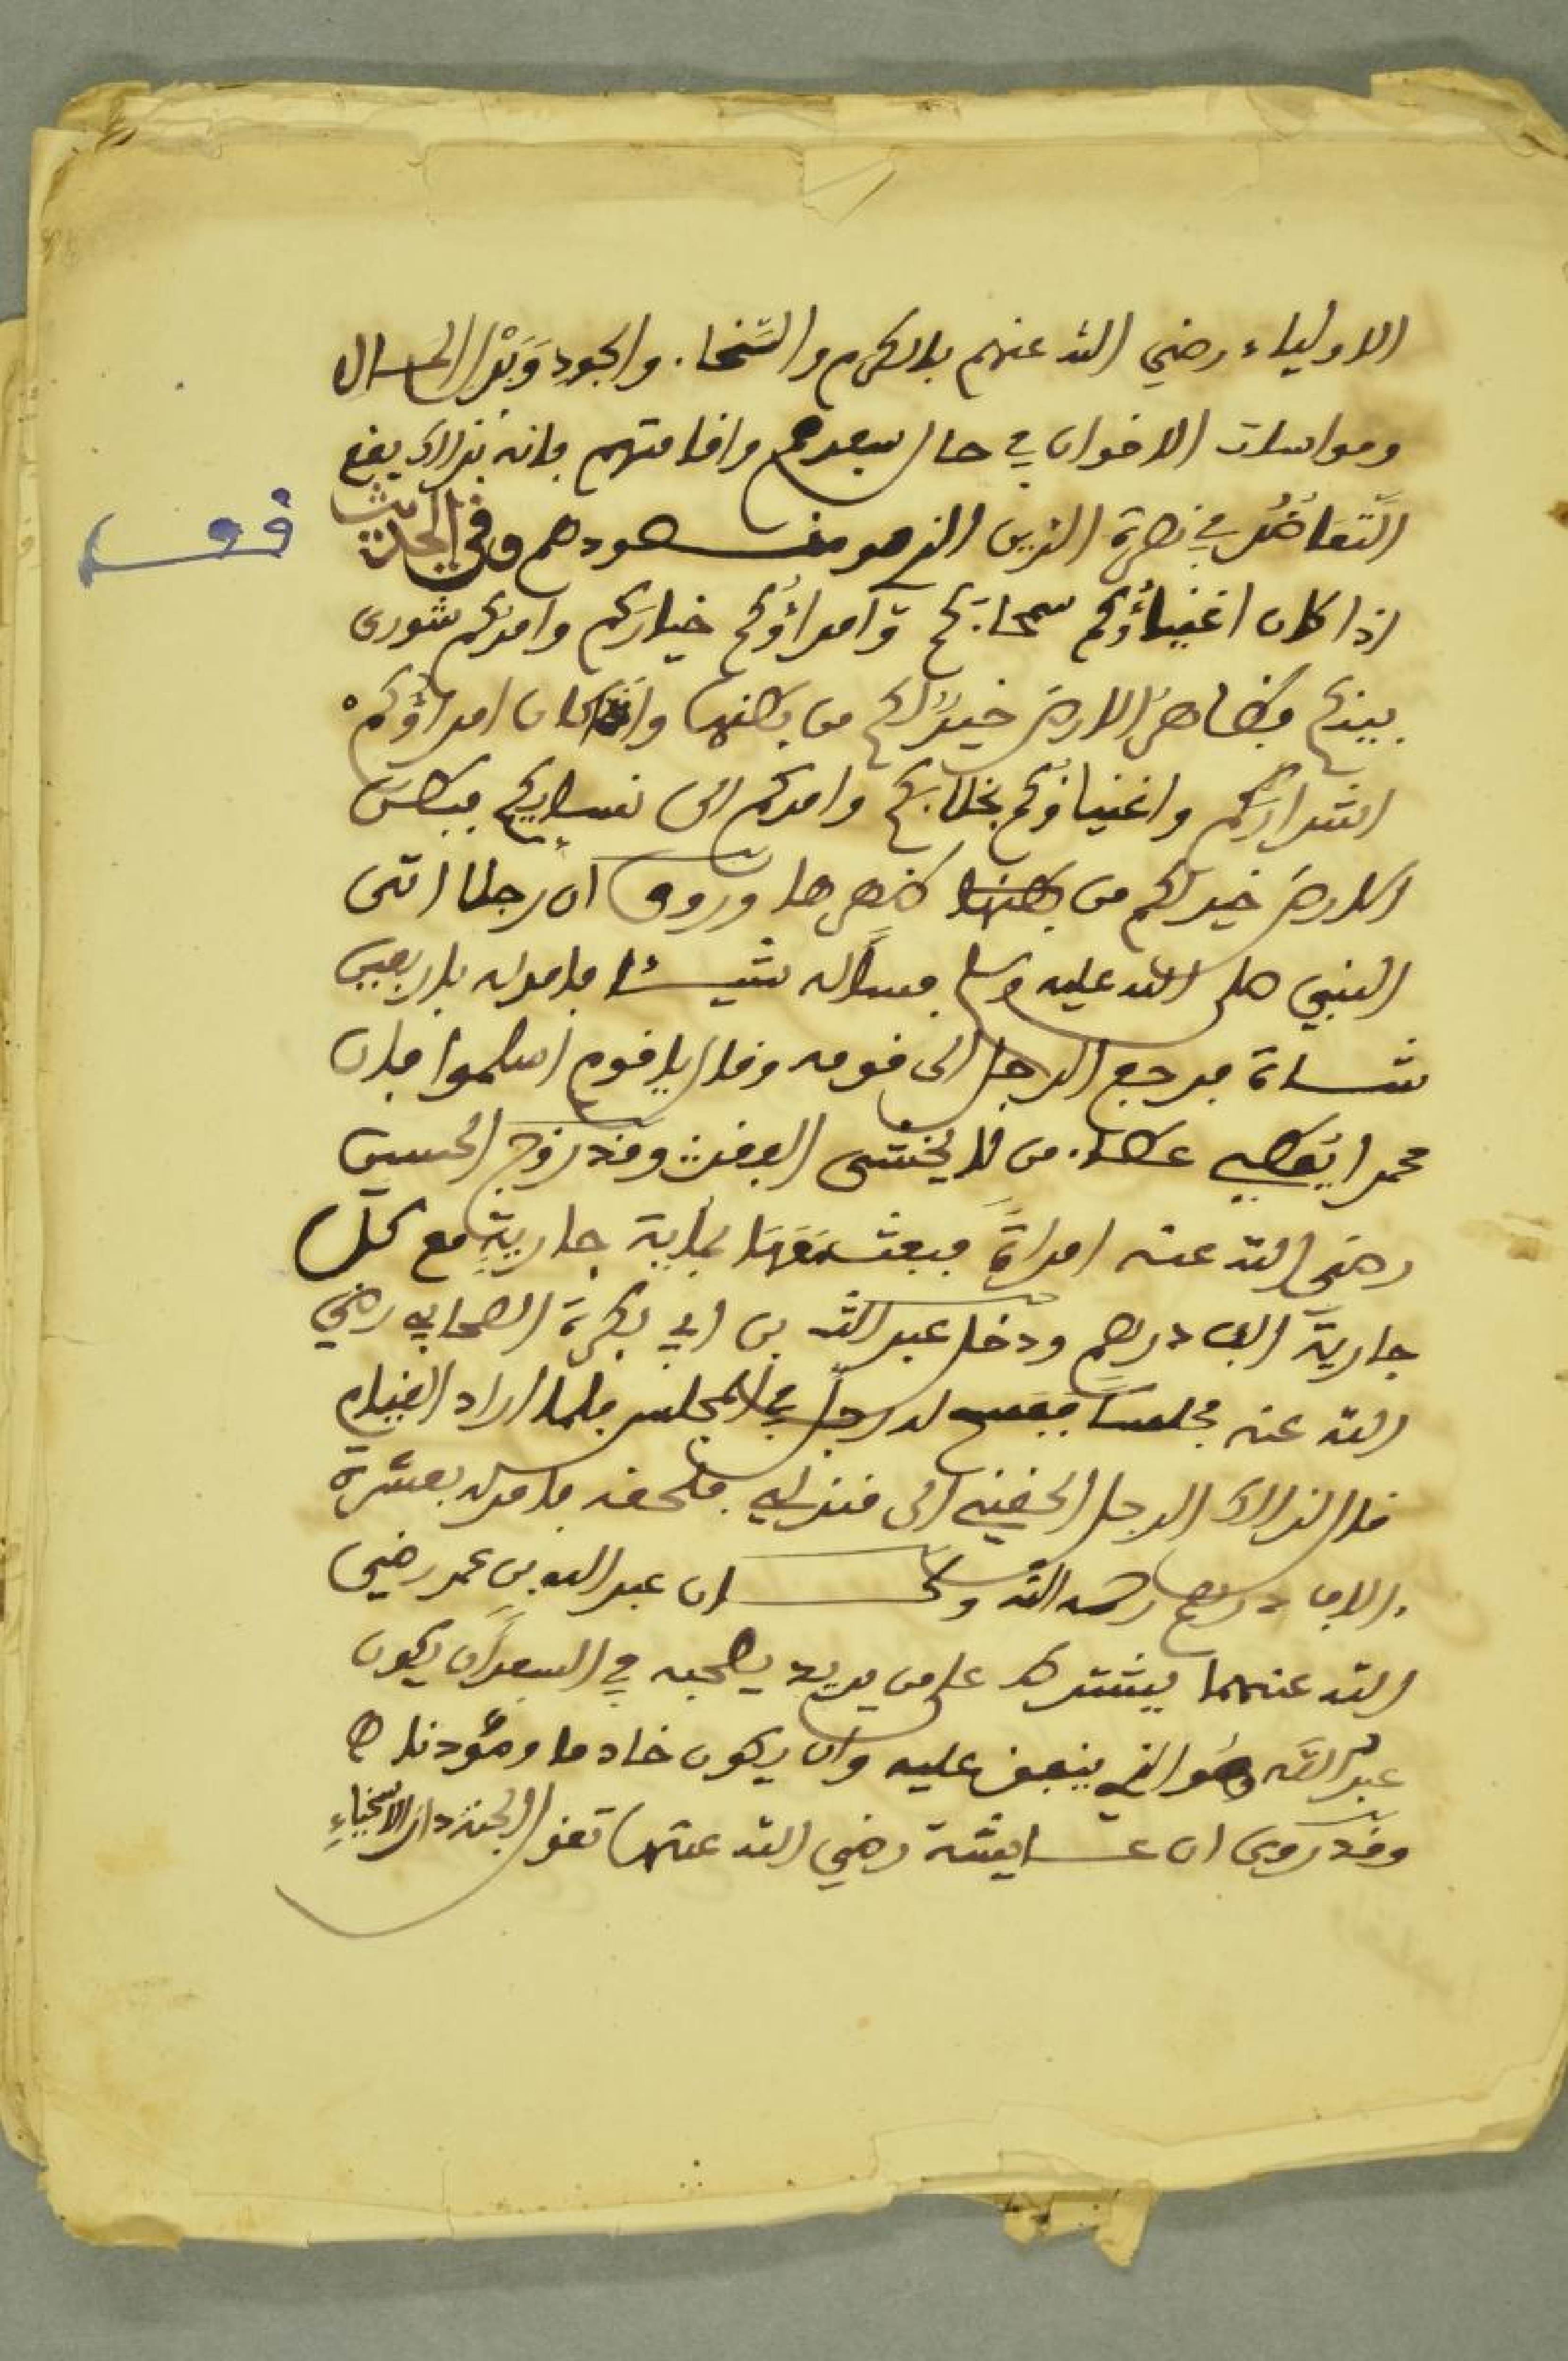 الاولياء رضي الله عنهم بالكرم والسَّخاء والجود وَبَذْل المال
ومواسات الاخوان في حال سفرهم واقامتهم فانه بذلك يقع
التَّعَاضُد في نصرة الدين الذي هو مقصودهم وفي الحديث
قف
اذا كان اغنياؤُكم سمحاءَكم وَامراؤُكم خيارَكم وامركم شورى
بينكم فظاهر الارض خيرٌ لكم من بطنها واذا كان امراؤُكم
اشرارَكم واغنياؤُكم بخلاءَكم وامركم الى نسايِكم فبطن
الارض خير لكم من ظهرها وروي ان رجلا اتى
النبي صلى الله عليه وسلم فساله شيئا فامر له باربعين
شاة فرجع الرجل الى قومه وقال يا قوم اسلموا فان
محمدا يُعطِي عطاء من لا يخشى الفقر وقد زوج الحسين
رضي الله عنه امراةً فبعث مَعَهَا بماية جاريةٍ مع كلّ
جارية الف درهم ودخل عبد الله بن ابي بكرة الصحابي رضي
الله عنه مجلسًا ففسح له رجلٌ في المجلس فلما اراد القيام
قال لذلك الرجل الحقني الى منزلي فلحقه فامر له بعشرة
الاف درهم رحمه الله وكان عبد الله بن عمر رضي
الله عنهما يشترط على من يريد يصحبه في السفر أن يكون
عبدُ الله هُوَ الذي ينفق عليه وان يكون خادما ومُؤذنا
وقد روي ان عايشة رضي الله عنها تقول الجنة دار الاسخياءِ